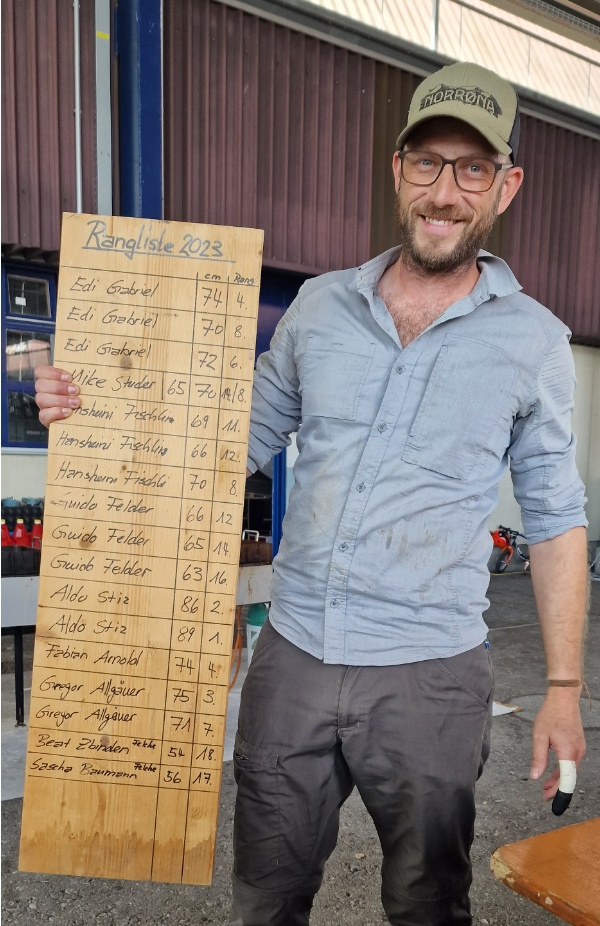 NORRØNA
Rangliste 2023
cm Rang
Edi Gabriel 74 4.
Edi Gabriel 70 8.
Edi Gabriel 72 6.
Mike Studer 65 70 14/8.
Hansheini Fischlin 69 11.
Hansheini Fischlin 66 12.
Hansheini Fischli 70 8.
Guido Felder 66 12
Guido Felder 65 14.
Guido Felder 63 16.
Aldo Stiz 86 2.
Aldo Stiz 89 1.
Fabian Arnold 74 4.
Gregor Allgäuer 75 3.
Gregor Allgäuer 71 7.
Beat Zbinden Felche 54 18.
Sascha Baumann Felche 56 17.